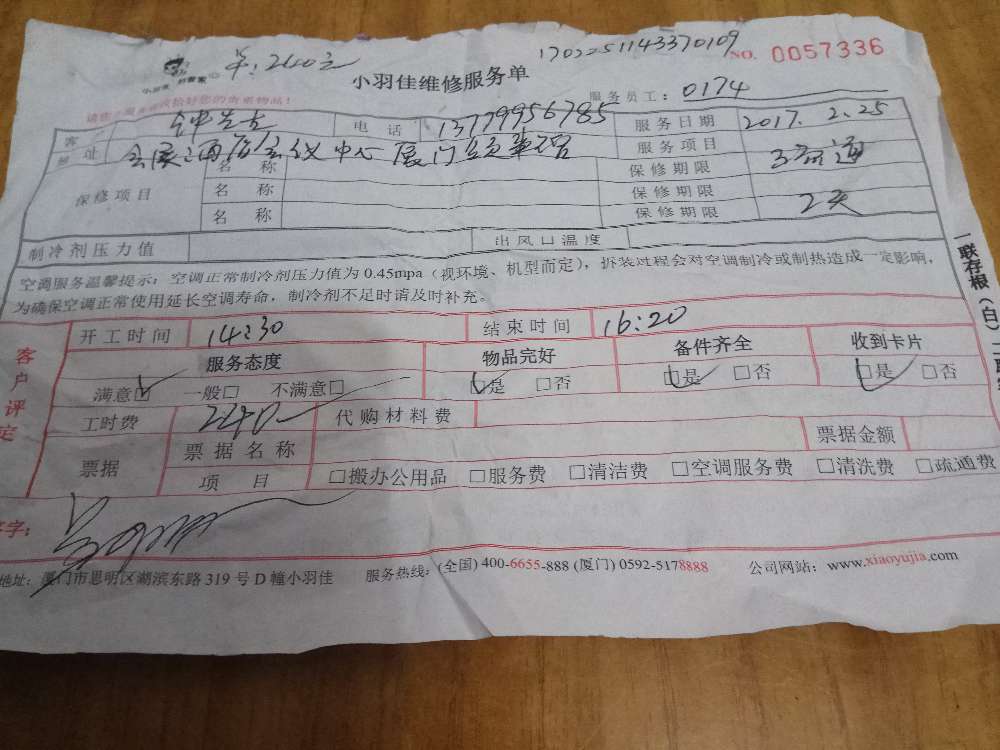 1702251143370109
单：2240元 小羽佳维修服务单 NO. 0057336
小羽佳 好管家 服务员工：0174
客 钟先生 电话 13779956785 服务日期 2017. 2. 25
地址 会展酒店会议中心厦门 服务项目 疏通
保修项目 名称 保修期限
名称 保修期限 2天
名称 保修期限
制冷剂压力值 出风口温度
空调服务温馨提示：空调正常制冷剂压力值为 0.45mpa（视环境、机型而定），拆装过程会对空调制冷或制热造成一定影响，
为确保空调正常使用延长空调寿命，制冷剂不足时请及时补充。
一联存根（白）
客户评定
开工时间 14:30 结束时间 16:20
服务态度 物品完好 备件齐全 收到卡片
满意☑ 一般□ 不满意□ ☑是 □否 ☑是 □否 ☑是 □否
工时费 2240 代购材料费
票据 票据名称 票据金额
项目 □搬办公用品 □服务费 □清洁费 □空调服务费 □清洗费 □疏通费
签字：
地址：厦门市思明区湖滨东路 319 号 D 幢小羽佳 服务热线：(全国) 400-6655-888 (厦门) 0592-5178888 公司网站：www.xiaoyujia.com